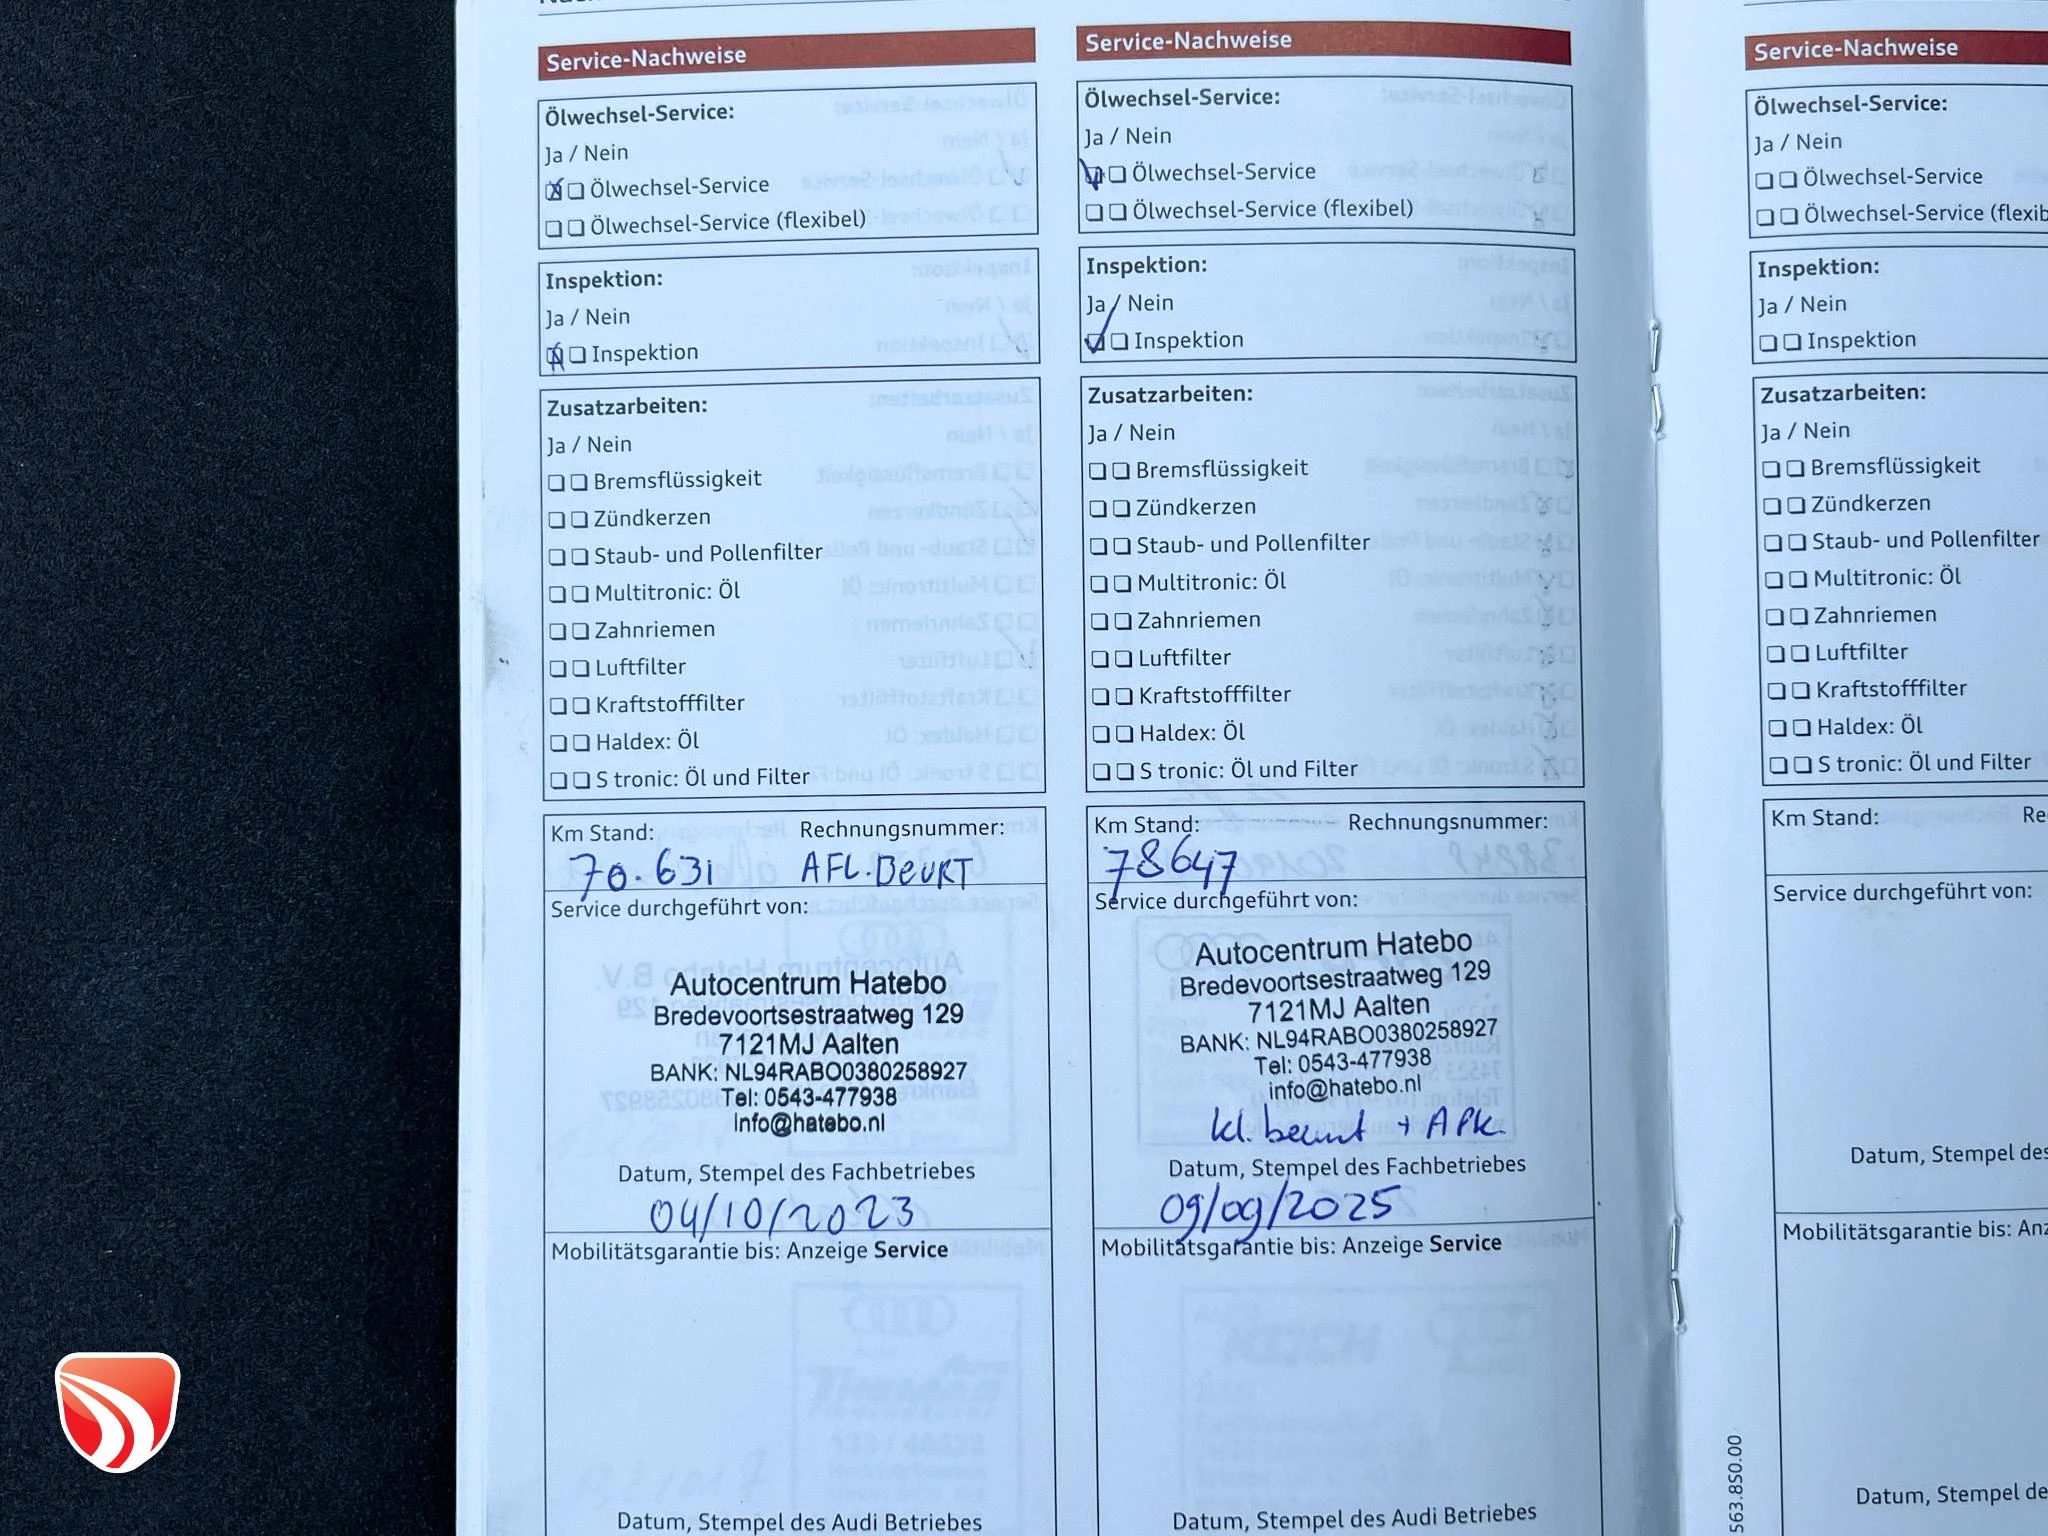 Service-Nachweise
Ölwechsel-Service:
Ja / Nein
Ölwechsel-Service
Ölwechsel-Service (flexibel)
Inspektion:
Ja / Nein
Inspektion
Zusatzarbeiten:
Ja / Nein
Bremsflüssigkeit
Zündkerzen
Staub- und Pollenfilter
Multitronic: Öl
Zahnriemen
Luftfilter
Kraftstofffilter
Haldex: Öl
S tronic: Öl und Filter
Km Stand: Rechnungsnummer:
70.631 AFL.BEURT
Service durchgeführt von:
Autocentrum Hatebo
Bredevoortsestraatweg 129
7121MJ Aalten
BANK: NL94RABO0380258927
Tel: 0543-477938
info@hatebo.nl
Datum, Stempel des Fachbetriebes
04/10/2023
Mobilitätsgarantie bis: Anzeige Service
Datum, Stempel des Audi Betriebes
Service-Nachweise
Ölwechsel-Service:
Ja / Nein
Ölwechsel-Service
Ölwechsel-Service (flexibel)
Inspektion:
Ja / Nein
Inspektion
Zusatzarbeiten:
Ja / Nein
Bremsflüssigkeit
Zündkerzen
Staub- und Pollenfilter
Multitronic: Öl
Zahnriemen
Luftfilter
Kraftstofffilter
Haldex: Öl
S tronic: Öl und Filter
Km Stand: Rechnungsnummer:
78647
Service durchgeführt von:
Autocentrum Hatebo
Bredevoortsestraatweg 129
7121MJ Aalten
BANK: NL94RABO0380258927
Tel: 0543-477938
info@hatebo.nl
kl. beurt + APK.
Datum, Stempel des Fachbetriebes
09/09/2025
Mobilitätsgarantie bis: Anzeige Service
Datum, Stempel des Audi Betriebes
Service-Nachweise
Ölwechsel-Service:
Ja / Nein
Ölwechsel-Service
Ölwechsel-Service (flexib
Inspektion:
Ja / Nein
Inspektion
Zusatzarbeiten:
Ja / Nein
Bremsflüssigkeit
Zündkerzen
Staub- und Pollenfilter
Multitronic: Öl
Zahnriemen
Luftfilter
Kraftstofffilter
Haldex: Öl
S tronic: Öl und Filter
Km Stand: Re
Service durchgeführt von:
Datum, Stempel des
Mobilitätsgarantie bis: Anz
Datum, Stempel de
563.850.00